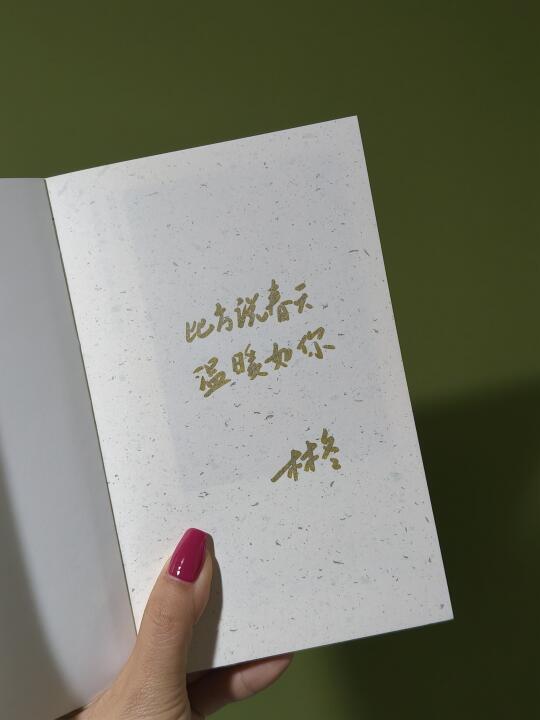 比方说春天
温暖如你
林冬